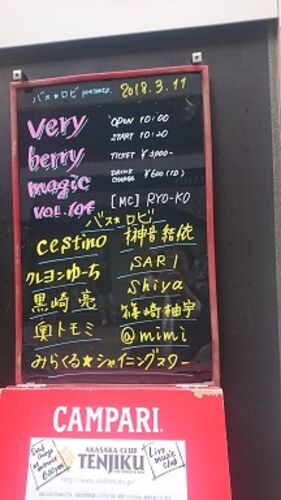 バス★ロビ presents. 2018.3.11
very
berry
magic
VOL.104
OPEN 10:00
START 10:20
TICKET ¥3,000-
DRINK CHARGE ¥600(1D)
[MC] RYO-KO
バス★ロビ
cestino 榊音結依
クレヨンゆーち SARI
黒崎 亮 Shiya
奥トモミ 篠崎柚宇
@mimi
みらくる★シャイニングスター
CAMPARI.
AKASAKA CLUB
TENJIKU
http://www.clubtenjiku.jp/
Live
music
club